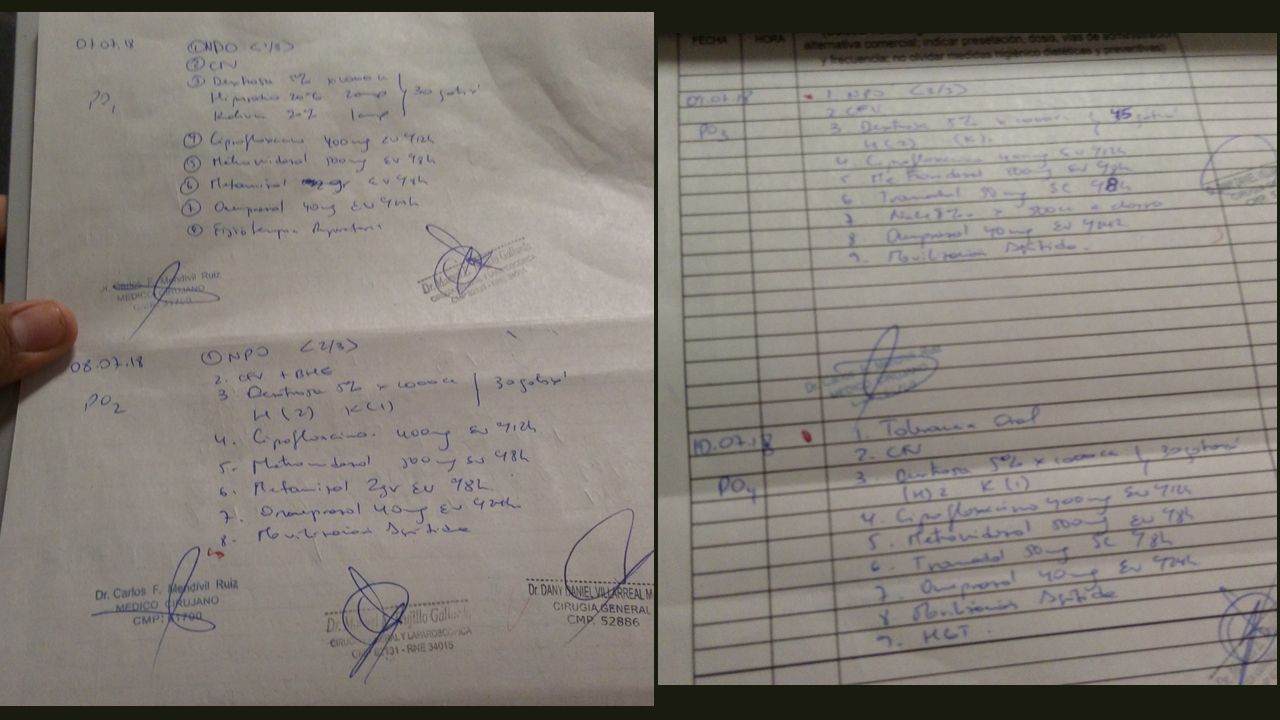 07.07.18
PO1
① NPO <1/3>
② CFV
③ Dextrosa 5% x 1000cc
Hipersodio 20% 2amp
Kalium 20% 1amp
30 gotas/
④ Ciprofloxacino 400mg EV q12h
⑤ Metronidazol 500mg EV q8h
⑥ Metamizol gr EV q8h
⑦ Omeprazol 40mg EV q24h
⑧ Fisioterapia Respiratoria
Dr. Carlos F. Mendívil Ruiz
MEDICO CIRUJANO
08.07.18
PO2
① NPO <2/3>
2. CFV + BHE
3 Dextrosa 5% x 1000cc
H (2) K (1)
30 gotas/
4. Ciprofloxacino 400mg EV q12h
5. Metronidazol 500mg EV q8h
6. Metamizol 2gr EV q8h
7. Omeprazol 40mg EV q24h
8. Movilización Asistida
Dr. Carlos F. Mendívil Ruiz
MEDICO CIRUJANO
CMP: 1700
CIRUGIA GENERAL Y LAPAROSCOPICA
RNE 34015
Dr. DANY DANIEL VILLARREAL M
CIRUGIA GENERAL
CMP. 52886
FECHA HORA
alternativa comercial; indicar presetación, dosis, vías de administra
y frecuencia; no olvidar medidas higiénico dietéticas y preventivas)
09.07.18
PO3
1. NPO <3/3>
2. CFV
3. Dextrosa 5% x 1000cc
45 gotas/
H (2) (K)1
4. Ciprofloxacino 400mg EV q12h
5 Metronidazol 500mg EV q8h
6 Tramadol 50mg SC q8h
8. Omeprazol 40mg EV q24h
9. Movilización Asistida.
10.07.18
PO4
1. Tolerancia Oral
2. CFV
3. Dextrosa 5% x 1000cc
30 gotas/
(H) 2 K (1)
4. Ciprofloxacino 400mg EV q12h
5. Metronidazol 500mg EV q8h
6. Tramadol 50mg SC q8h
7 Omeprazol 40mg EV q24h
8 Movilización Asistida
9. HGT.